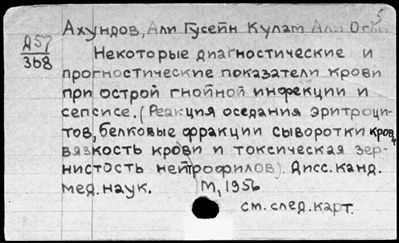 3
Ахундов, Али Гусейн Кулат Али Оглы
Д57
368
Некоторые диагностические и
прогностические показатели крови
при острой гнойной инфекции и
сепсисе. (Реакция оседания эритроци-
тов, белковые фракции сыворотки крови,
вязкость крови и токсическая зер-
нистость нейтрофилов). Дисс. канд.
мед. наук. М, 1956
см. след. карт.